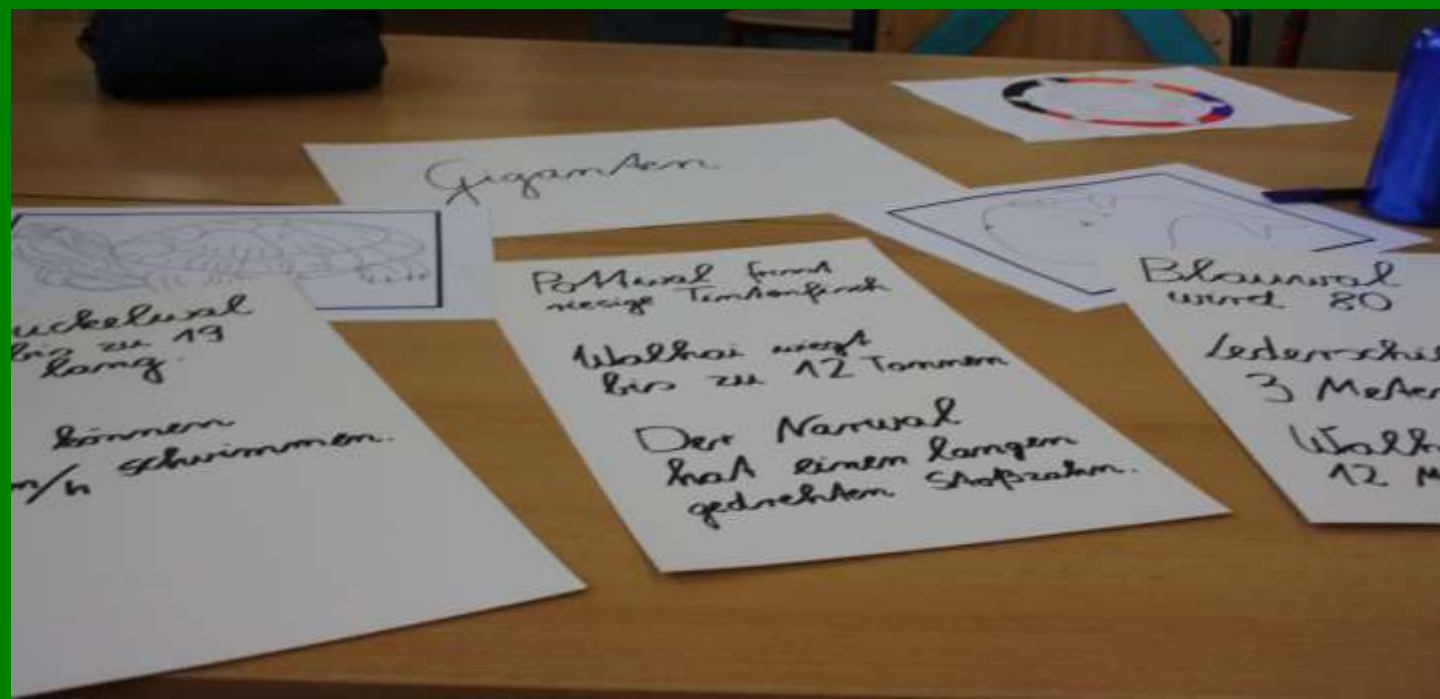 Giganten
uckelwal
bis zu 19
lang.
können
m/h schwimmen.
Pottwal frisst
riesige Tintenfisch
Walhai wiegt
bis zu 12 Tonnen
Der Narwal
hat einen langen
gedrehten Stoßzahn.
Blauwal
wird 80
Lederschil
3 Meter
Walh
12 M